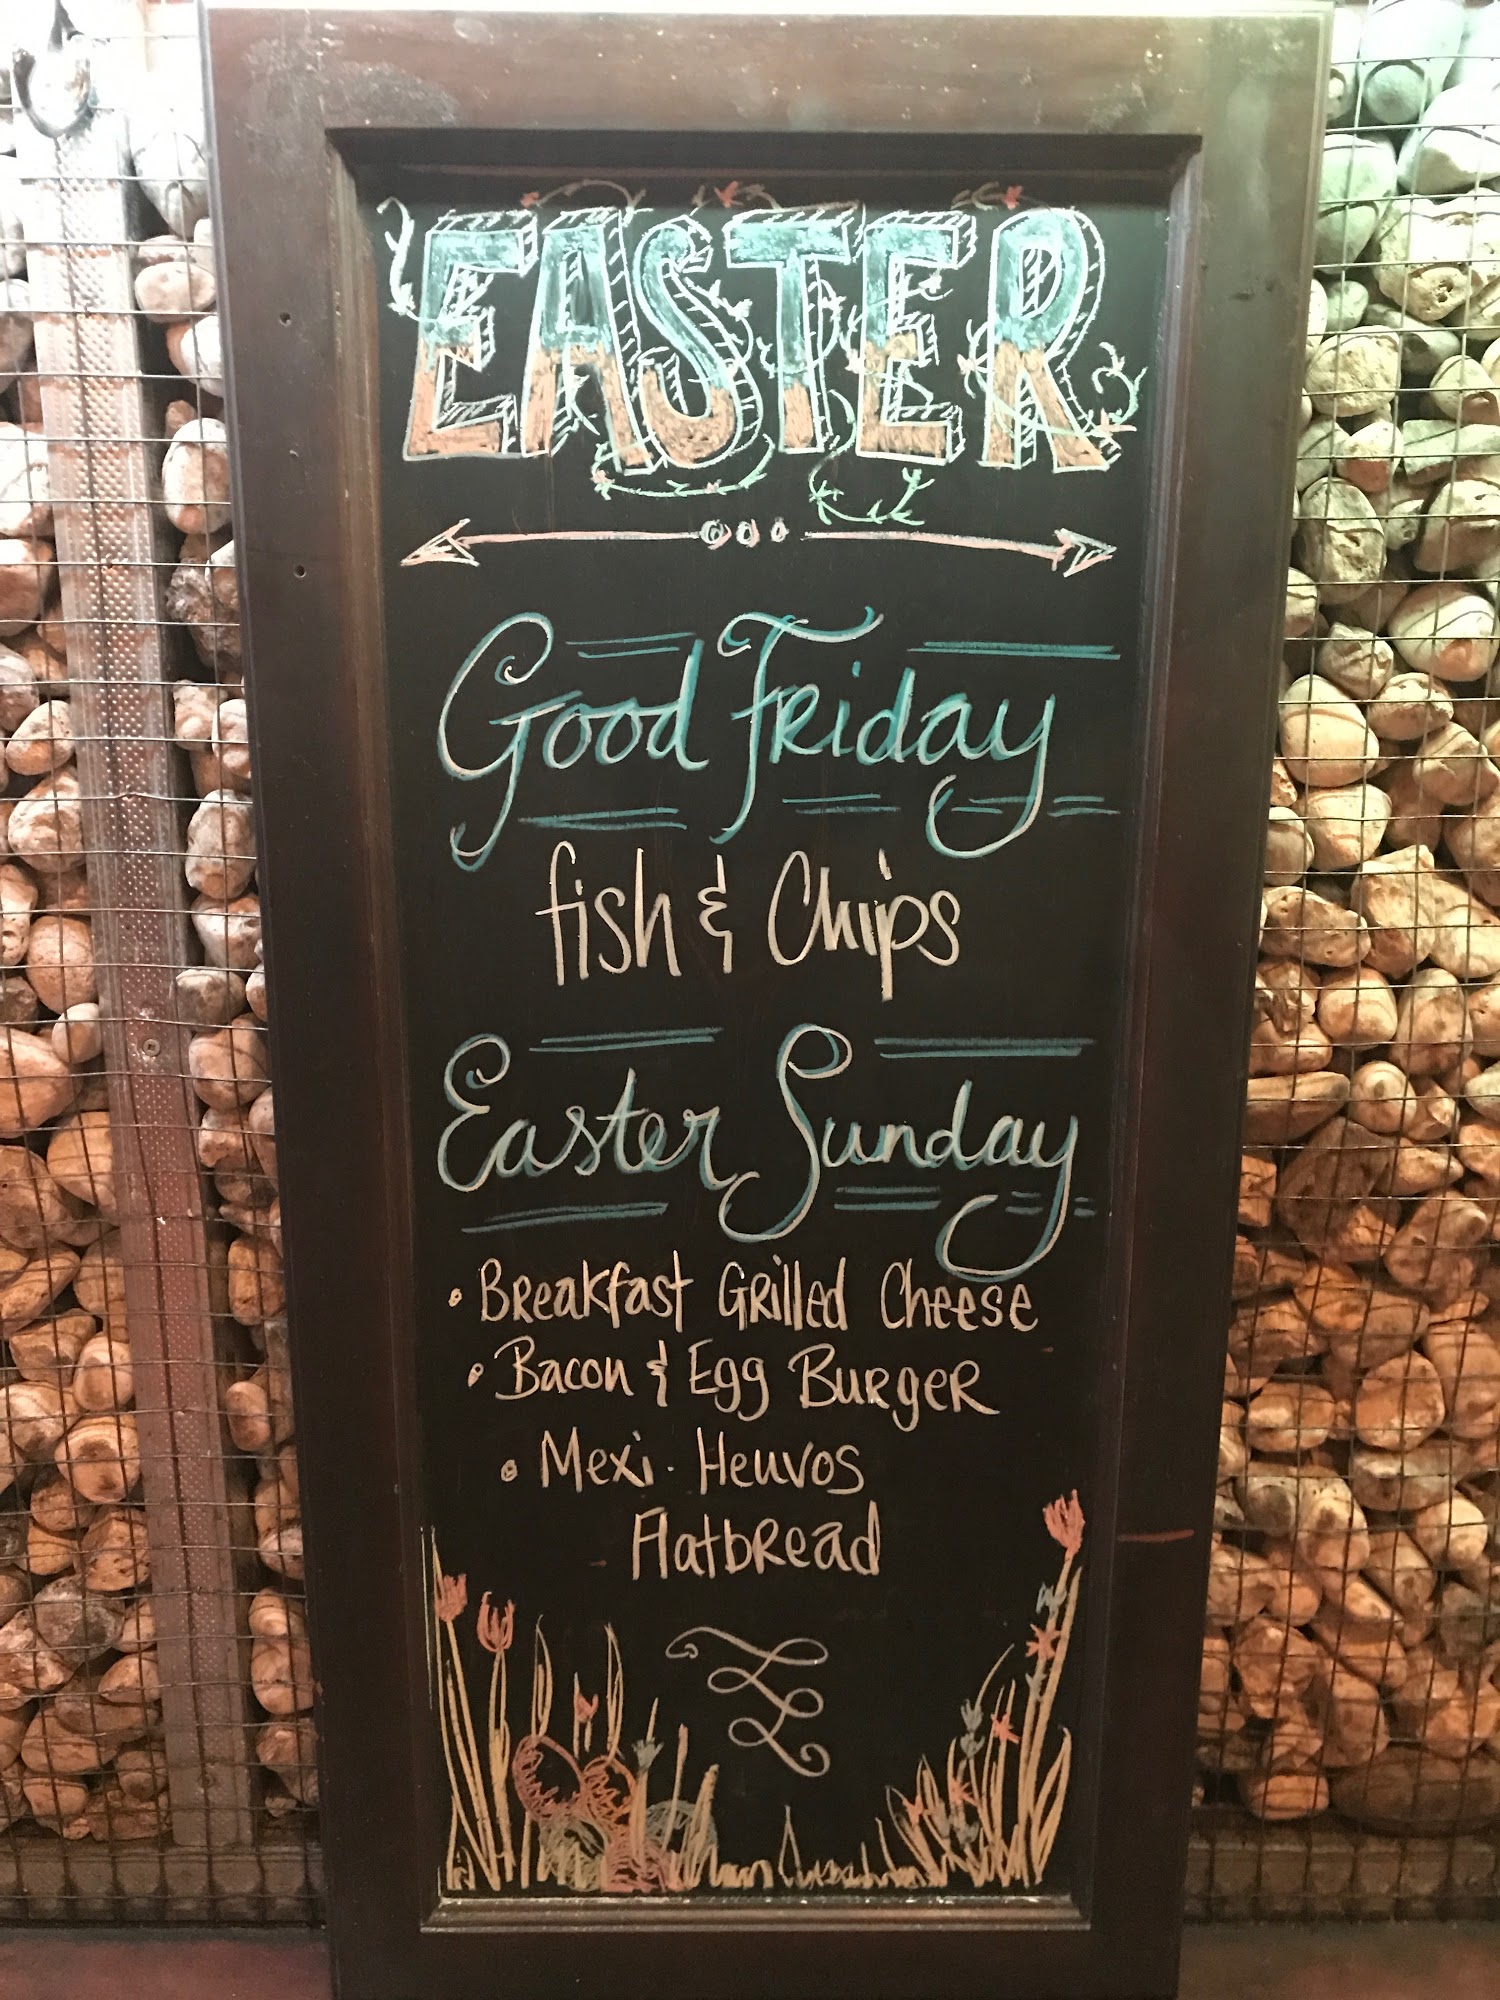 EASTER
Good Friday
fish & Chips
Easter Sunday
• Breakfast Grilled Cheese
• Bacon & Egg Burger
• Mexi. Heuvos
Flatbread